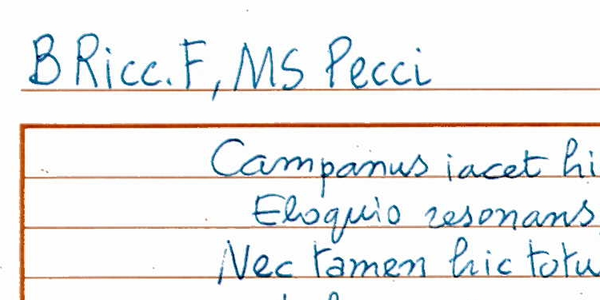 B Ricc. F, MS Pecci
Campanus iacet hi
Eloquio resonans
Nec tamen hic totu